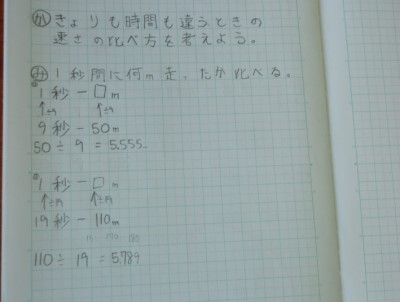 か きょりも時間も違うときの
速さの比べ方を考えよう。
み 1秒間に何m走ったか比べる。
1秒－□m
↑÷9 ↑÷9
9秒－50m
50÷9=5.555…
1秒－□m
↑÷19 ↑÷19
19秒－110m
110÷19=5.789